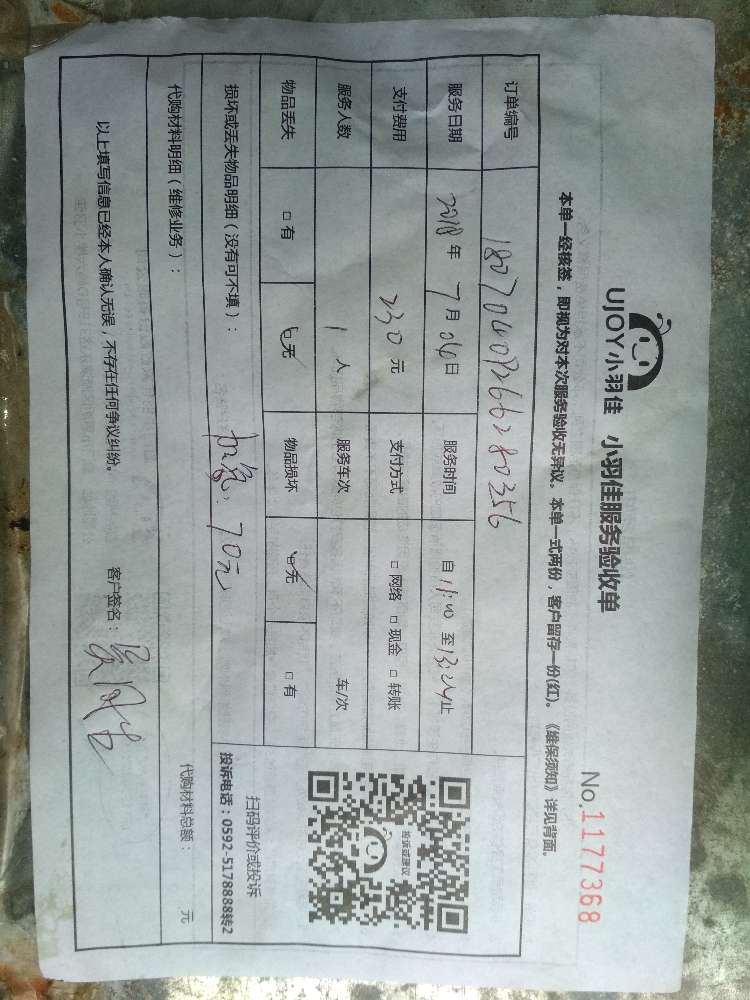 UJOY小羽佳 小羽佳服务验收单
No.1177368
本单一经核签，即视为对本次服务验收无异议。本单一式两份，客户留存一份(红)。《维保须知》详见背面。
订单编号
服务日期 2018年 7月 04日 服务时间 自 11:00 至 13:24止
支付费用 230元 支付方式 □ 网络 □ 现金 □ 转账
服务人数 1 人 服务车次 车/次
物品丢失 □ 有 □ 无 物品损坏 □ 无 □ 有
损坏或丢失物品明细（没有可不填）：
加氟：70元
投诉或建议
扫码评价或投诉
投诉电话：0592-5178888转2
代购材料明细（维修业务）： 代购材料总额： 元
以上填写信息已经本人确认无误，不存在任何争议纠纷。 客户签名：